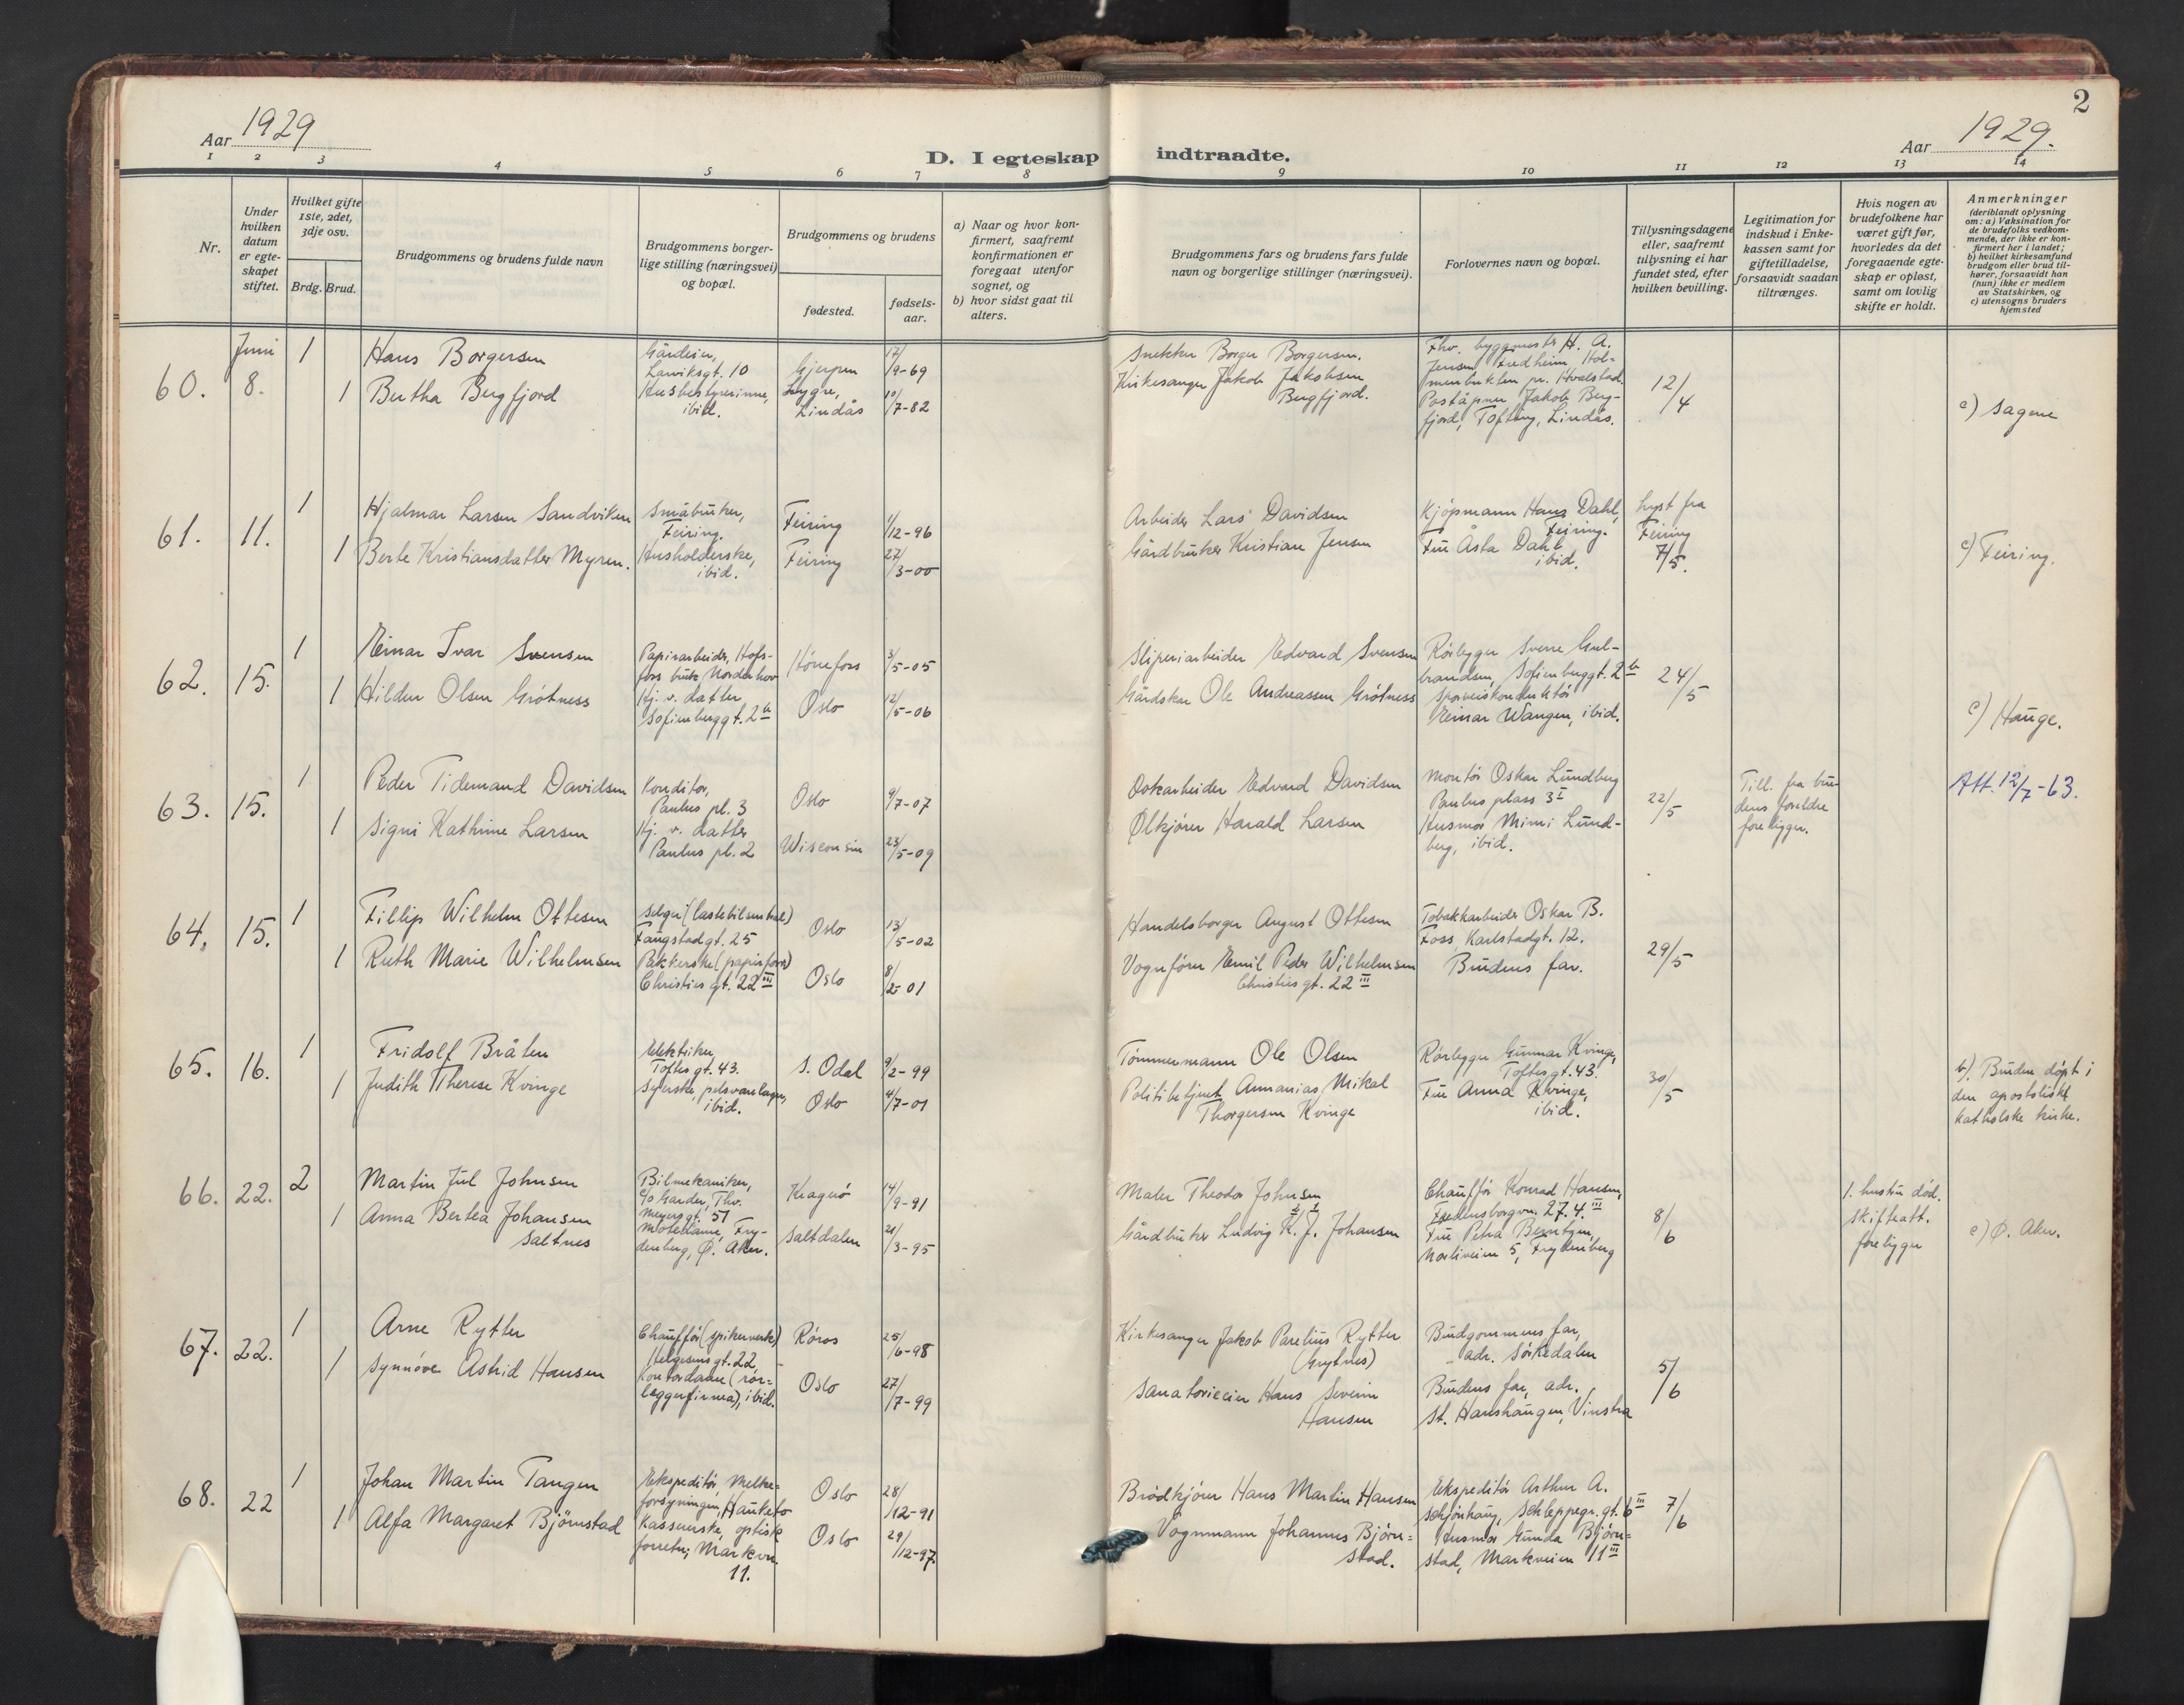 Aar 1929
D. I egteskap indtraadte.
Aar 1929.
2
1 2 3 4 5 6 7 8 9 10 11 12 13 14
Nr.
Under hvilken datum er egte-skapet stiftet.
Hvilket gifte 1ste, 2det, 3dje osv.
Brdg. Brud.
Brudgommens og brudens fulde navn
Brudgommens borger-
lige stilling (næringsvei)
og bopæl.
Brudgommens og brudens
fødested.
fødsels-
aar.
a) Naar og hvor kon-
firmert, saafremt
konfirmationen er
foregaat utenfor
sognet, og
b) hvor sidst gaat til
alters.
Brudgommens fars og brudens fars fulde
navn og borgerlige stillinger (næringsvei).
Forlovernes navn og bopæl.
Tillysningsdagene
eller, saafremt
tillysning ei har
fundet sted, efter
hvilken bevilling.
Legitimation for
indskud i Enke-
kassen samt for
giftetilladelse,
forsaavidt saadan
tiltrænges.
Hvis nogen av
brudefolkene har
været gift før,
hvorledes da det
foregaaende egte-
skap er opløst,
samt om lovlig
skifte er holdt.
Anmerkninger
(deriblandt oplysning
om: a) Vaksination for
de brudefolks vedkom-
mende, der ikke er kon-
firmert her i landet;
b) hvilket kirkesamfund
brudgom eller brud til-
hører, forsaavidt han
(hun) ikke er medlem
av Statskirken, og
c) utensogns bruders
hjemsted
60. Juni 8. 1
Hans Borgersen
Gårdeier,
Larviksgt. 10
Gjerpen
17/9-69
1 Bertha Bergfjord
Husbestyrerinne,
ibid.
Lygre,
Lindås
10/7-82
Snekker Borger Borgersen.
Kirkesanger Jakob Jakobsen
Bergfjord.
Fhv. byggmester H. A.
Jensen Fredheim Hol-
menbukten pr. Hvalstad.
Poståpner Jakob Berg-
fjord, Tofting, Lindås.
12/4
c) Sagene
61. 11. 1
Hjalmar Larsen Sandviken
Småbruker,
Feiring.
Feiring
1/12-96
1 Berte Kristiansdatter Myren.
Husholderske,
ibid.
Feiring
27/3-00
Arbeider Lars Davidsen
Gårdbruker Kristian Jensen
Kjøpmann Hans Dahl,
Feiring.
Fru Åsta Dahl
ibid.
Lyst fra
Feiring
7/5.
c) Feiring.
62. 15. 1
Einar Ivar Svensen
Papirarbeider, Hofs-
fors bruk Norderhov
Hønefoss
3/5-05
1 Hilden Olsen Grötness
Hj. v. datter
Sofienberggt. 2b
Oslo
12/5-06
Sliperiarbeider Edvard Svensen
Gårdsker Ole Andreassen Grötness
Rørlegger Sverre Gul-
brandsen, Sofienberggt. 2b
Sporveiskonduktør
Einar Wangen, ibid.
24/5
c) Hauge.
63. 15. 1
Peder Tidemand Davidsen
Konditor,
Paulus pl. 3
Oslo
9/7-07
1 Signi Kathrine Larsen
Hj. v. datter
Paulus pl. 2
Wisconsin
23/5-09
Dokarbeider Edvard Davidsen
Ølkjører Harald Larsen
Montör Oskar Lundberg
Paulus plass 3 I
Husmor Mimi Lund-
berg, ibid.
22/5
Till. fra bru-
dens foreldre
foreligger.
Att. 12/7-63.
64. 15. 1
Fillip Wilhelm Ottesen
Selger (lastebilsentral)
Fangstadgt. 25
Oslo
13/5-02
1 Ruth Marie Wilhelmsen
Pakkerske (papirforr.)
Christies gt. 22 III
Oslo
8/2-01
Handelsborger August Ottesen
Vognfører Emil Peder Wilhelmsen
Christies gt. 22 III
Tobakkarbeider Oskar B.
Foss, Karlstadgt. 12.
Brudens far.
29/5
65. 16. 1
Fridolf Bråten
Elektriker
Toftesgt. 43.
S. Odal
9/2-99
1 Judith Therese Kvinge
Syerske, pelsvarelager,
ibid.
Oslo
4/7-01
Tømmermann Ole Olsen
Politibetjent Annanias Mikal
Thorgersen Kvinge
Rørlegger Gunnar Kvinge,
Toftesgt. 43.
Fru Anna Kvinge,
ibid.
30/5
b). Bruden døpt i
den apostoliske
katholske kirke.
66. 22. 2
Martin Jul Johnsen
Bilmekaniker,
c/o Garder, Thv.
Meyersgt. 51
Kragerö
14/9-91
1 Anna Bertea Johansen
Saltnes
Motedame, Fry-
denberg, Ø. Aker.
Saltdalen
21/3-95
Maler Theodor Johnsen
Gårdbruker Ludvig K. J. Johansen
Chauffør Konrad Hansen,
Fredensborgvn. 27. 4. III
Fru Petra Berntzen,
Marliveien 5, Frydenberg
8/6
1. hustru död.
Skifteatt.
foreligger
c) Ø. Aker.
67. 22. 1
Arne Rytter
Chauffør (spikerverk)
Helgesens gt. 22,
Røros
25/6-98
1 Synnöve Astrid Hansen
Kontordame (rør-
leggerfirma), ibid.
Oslo
27/7-99
Kirkesanger Jakob Parelius Rytter
(Grytnes)
Sanatorieeier Hans Severin
Hansen
Brudgommens far,
adr. Sørkedalen
Brudens far, adr.
St. Hanshaugen, Vinstra
5/6
68. 22 1
Johan Martin Tangen
Ekspeditör, Melke-
forsyningen, Hauketo
Oslo
28/12-91
1 Alfa Margaret Björnstad
Kassererske, optisk
forretn., Markvn.
11.
Oslo
29/12-97.
Brödkjörer Hans Martin Hansen
Vognmann Johannes Björn=
stad.
Ekspeditör Arthur A.
Schjönhaug, Schleppegr. gt. 6 III
Husmor Gunda Björn=
stad, Markveien 11 III
7/6